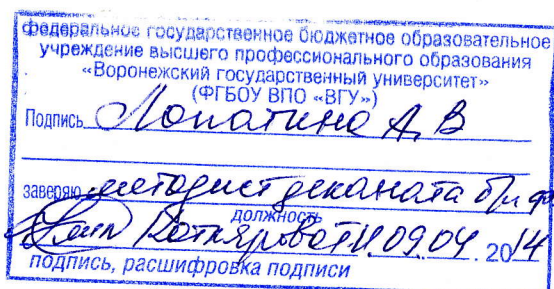 федеральное государственное бюджетное образовательное
учреждение высшего профессионального образования
«Воронежский государственный университет»
(ФГБОУ ВПО «ВГУ»)
Подпись Лопатина А.В
заверяю методист деканата
должность
09.04. 2014
подпись, расшифровка подписи